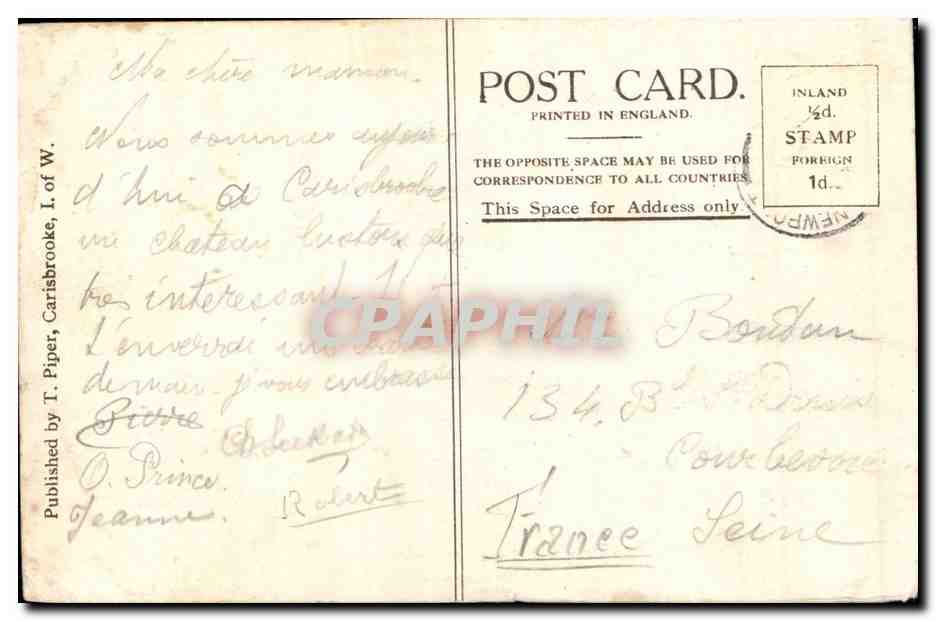 Ma chère maman.
Nous sommes aujour
d'hui à Carisbrooke
un chateau historique
très intéressant.
t'enverrai une
demain. je vous embrasse
Pierre
O. Prince.
Jeanne.
Robert
Published by T. Piper, Carisbrooke, I. of W.
POST CARD.
PRINTED IN ENGLAND.
THE OPPOSITE SPACE MAY BE USED FOR
CORRESPONDENCE TO ALL COUNTRIES
This Space for Address only
INLAND
½d.
STAMP
FOREIGN
1d.
NEWPO
CPAPHIL
Boudan
134. Bd St Denis
Courbevoie
Seine
France